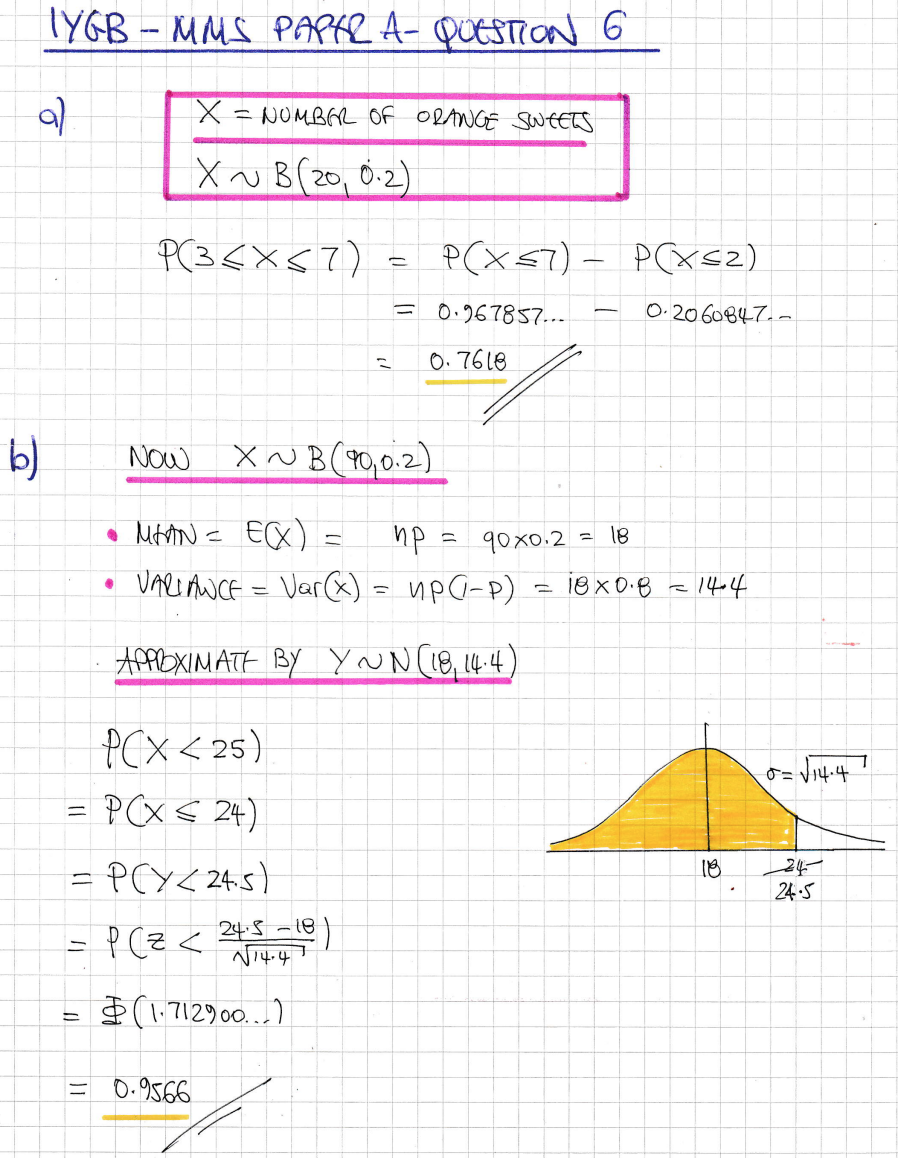 IYGB - MMS PAPER A - QUESTION 6
a)
X = NUMBER OF ORANGE SWEETS
X ~ B(20, 0.2)
P(3 ≤ X ≤ 7) = P(X ≤ 7) - P(X ≤ 2)
= 0.967857... - 0.2060847...
= 0.7618
b)
NOW X ~ B(90, 0.2)
• MEAN = E(X) = np = 90×0.2 = 18
• VARIANCE = Var(X) = np(1-p) = 18×0.8 = 14.4
APPROXIMATE BY Y ~ N(18, 14.4)
P(X < 25)
= P(X ≤ 24)
= P(Y < 24.5)
= P(Z < (24.5 - 18)/√14.4)
= Φ(1.712900...)
= 0.9566
σ = √14.4
18
24
24.5